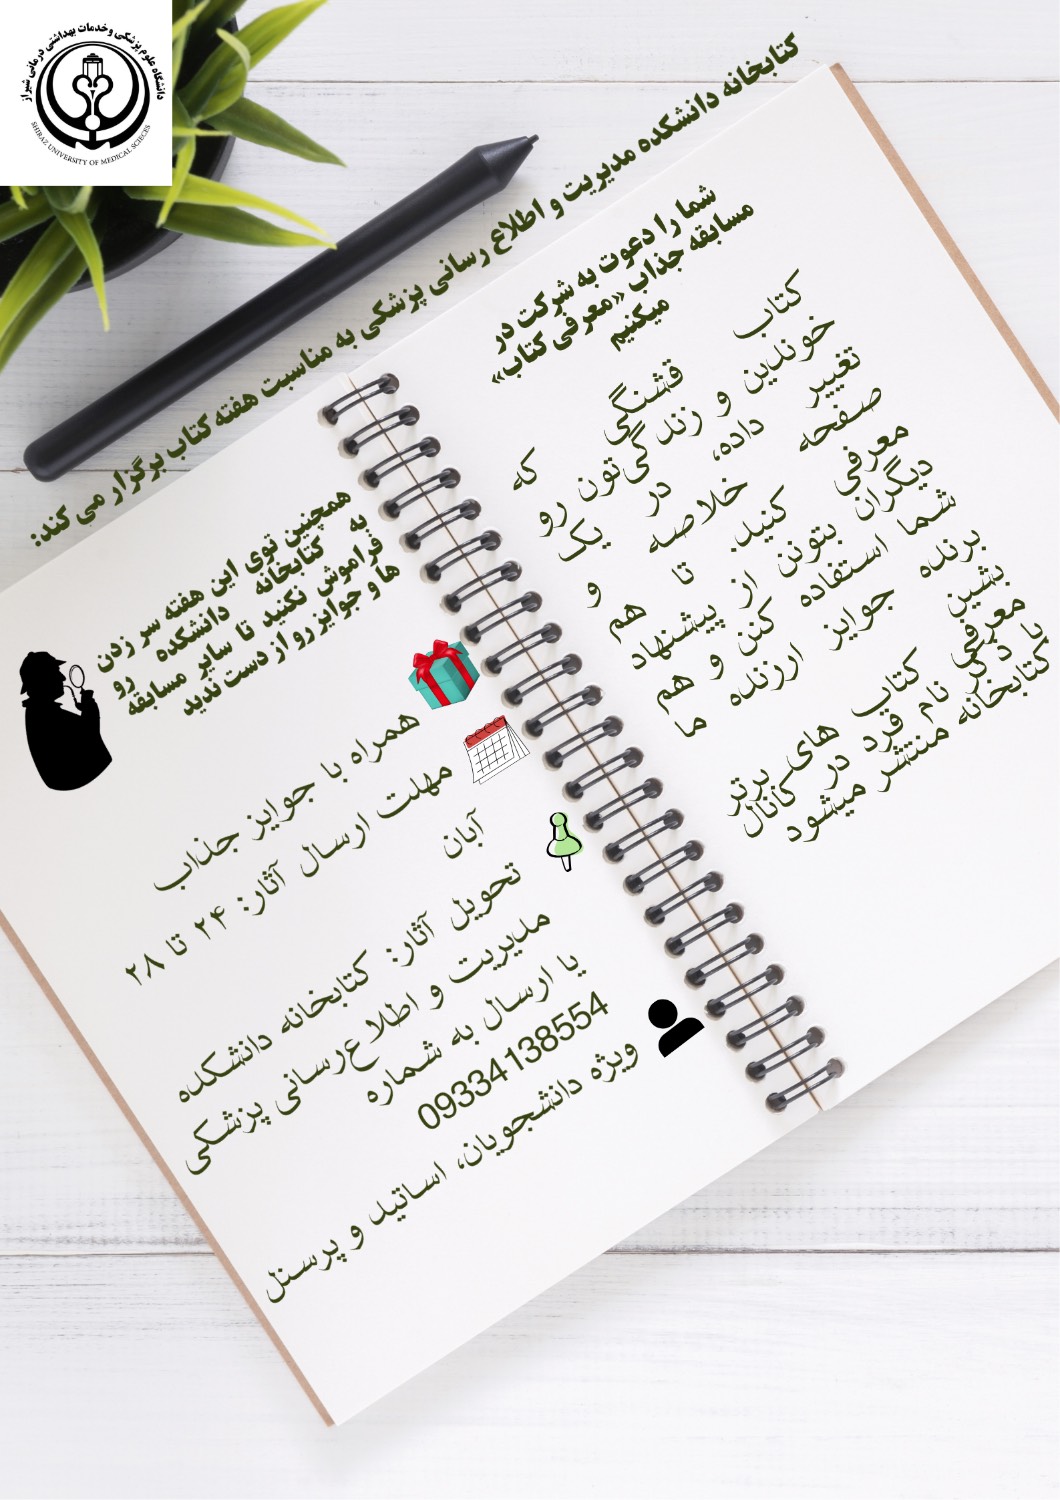 دانشگاه علوم پزشکی و خدمات بهداشتی درمانی شیراز
SHIRAZ UNIVERSITY OF MEDICAL SCIECES
کتابخانه دانشکده مدیریت و اطلاع رسانی پزشکی به مناسبت هفته کتاب برگزار می کند:
شما را دعوت به شرکت در
مسابقه جذاب «معرفی کتاب»
میکنیم
کتاب قشنگی که
خوندین و زندگی‌تون رو
تغییر داده، در یک
صفحه خلاصه و
معرفی کنید. تا هم
دیگران بتونن از پیشنهاد
شما استفاده کنن و هم
برنده جوایز ارزنده ما
بشین
معرفی کتاب های برتر
با ذکر نام فرد در کانال
کتابخانه منتشر میشود
همچنین توی این هفته سر زدن
به کتابخانه دانشکده رو
فراموش نکنید تا سایر مسابقه
ها و جوایز رو از دست ندید
همراه با جوایز جذاب
مهلت ارسال آثار: ۲۴ تا ۲۸
آبان
تحویل آثار: کتابخانه دانشکده
مدیریت و اطلاع‌رسانی پزشکی
یا ارسال به شماره
09334138554
ویژه دانشجویان، اساتید و پرسنل